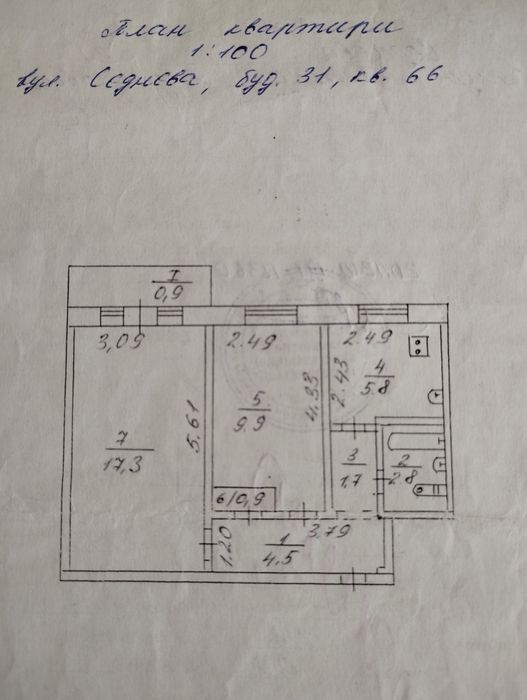 План квартири
1:100
вул. Сєднєва, буд. 31, кв. 66
I
0,9
3,09
2.49
2.49
4
5.8
2.43
5
9.9
4.33
5.61
7
17,3
3
1,7
2
2.8
6/0,9
1.20
3.79
1
4.5